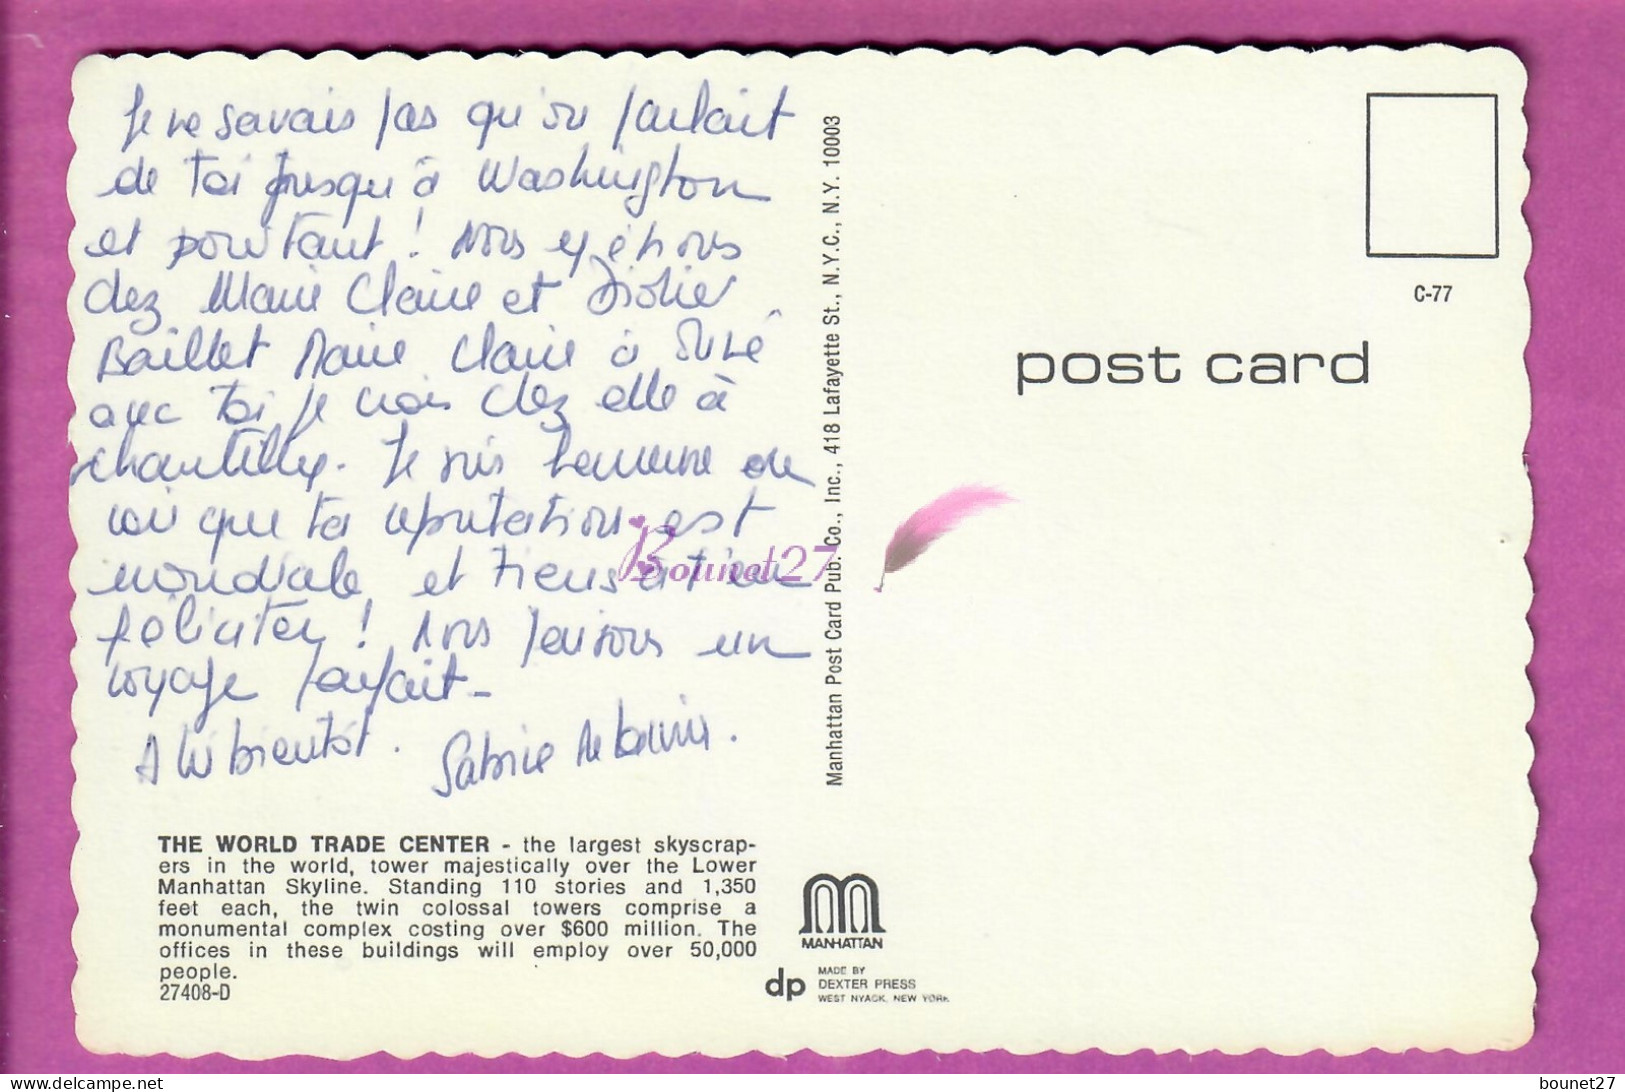 Je ne savais pas qu'on parlait
de toi jusqu'à Washington
et pourtant ! Nous y étions
chez Marie Claire et Didier
Baillet Marie Claire a
avec toi je crois chez elle à
chantilly. Je suis heureuse de
voir que ta réputation est
mondiale et tiens à t'en
féliciter ! Nous faisons un
voyage parfait_
A bientôt.
THE WORLD TRADE CENTER - the largest skyscrap-
ers in the world, tower majestically over the Lower
Manhattan Skyline. Standing 110 stories and 1,350
feet each, the twin colossal towers comprise a
monumental complex costing over $600 million. The
offices in these buildings will employ over 50,000
people.
27408-D
Manhattan Post Card Pub. Co., Inc., 418 Lafayette St., N.Y.C., N.Y. 10003
Bounet27
MANHATTAN
dp
MADE BY
DEXTER PRESS
WEST NYACK, NEW YORK
C-77
post card
delcampe.net
bounet27